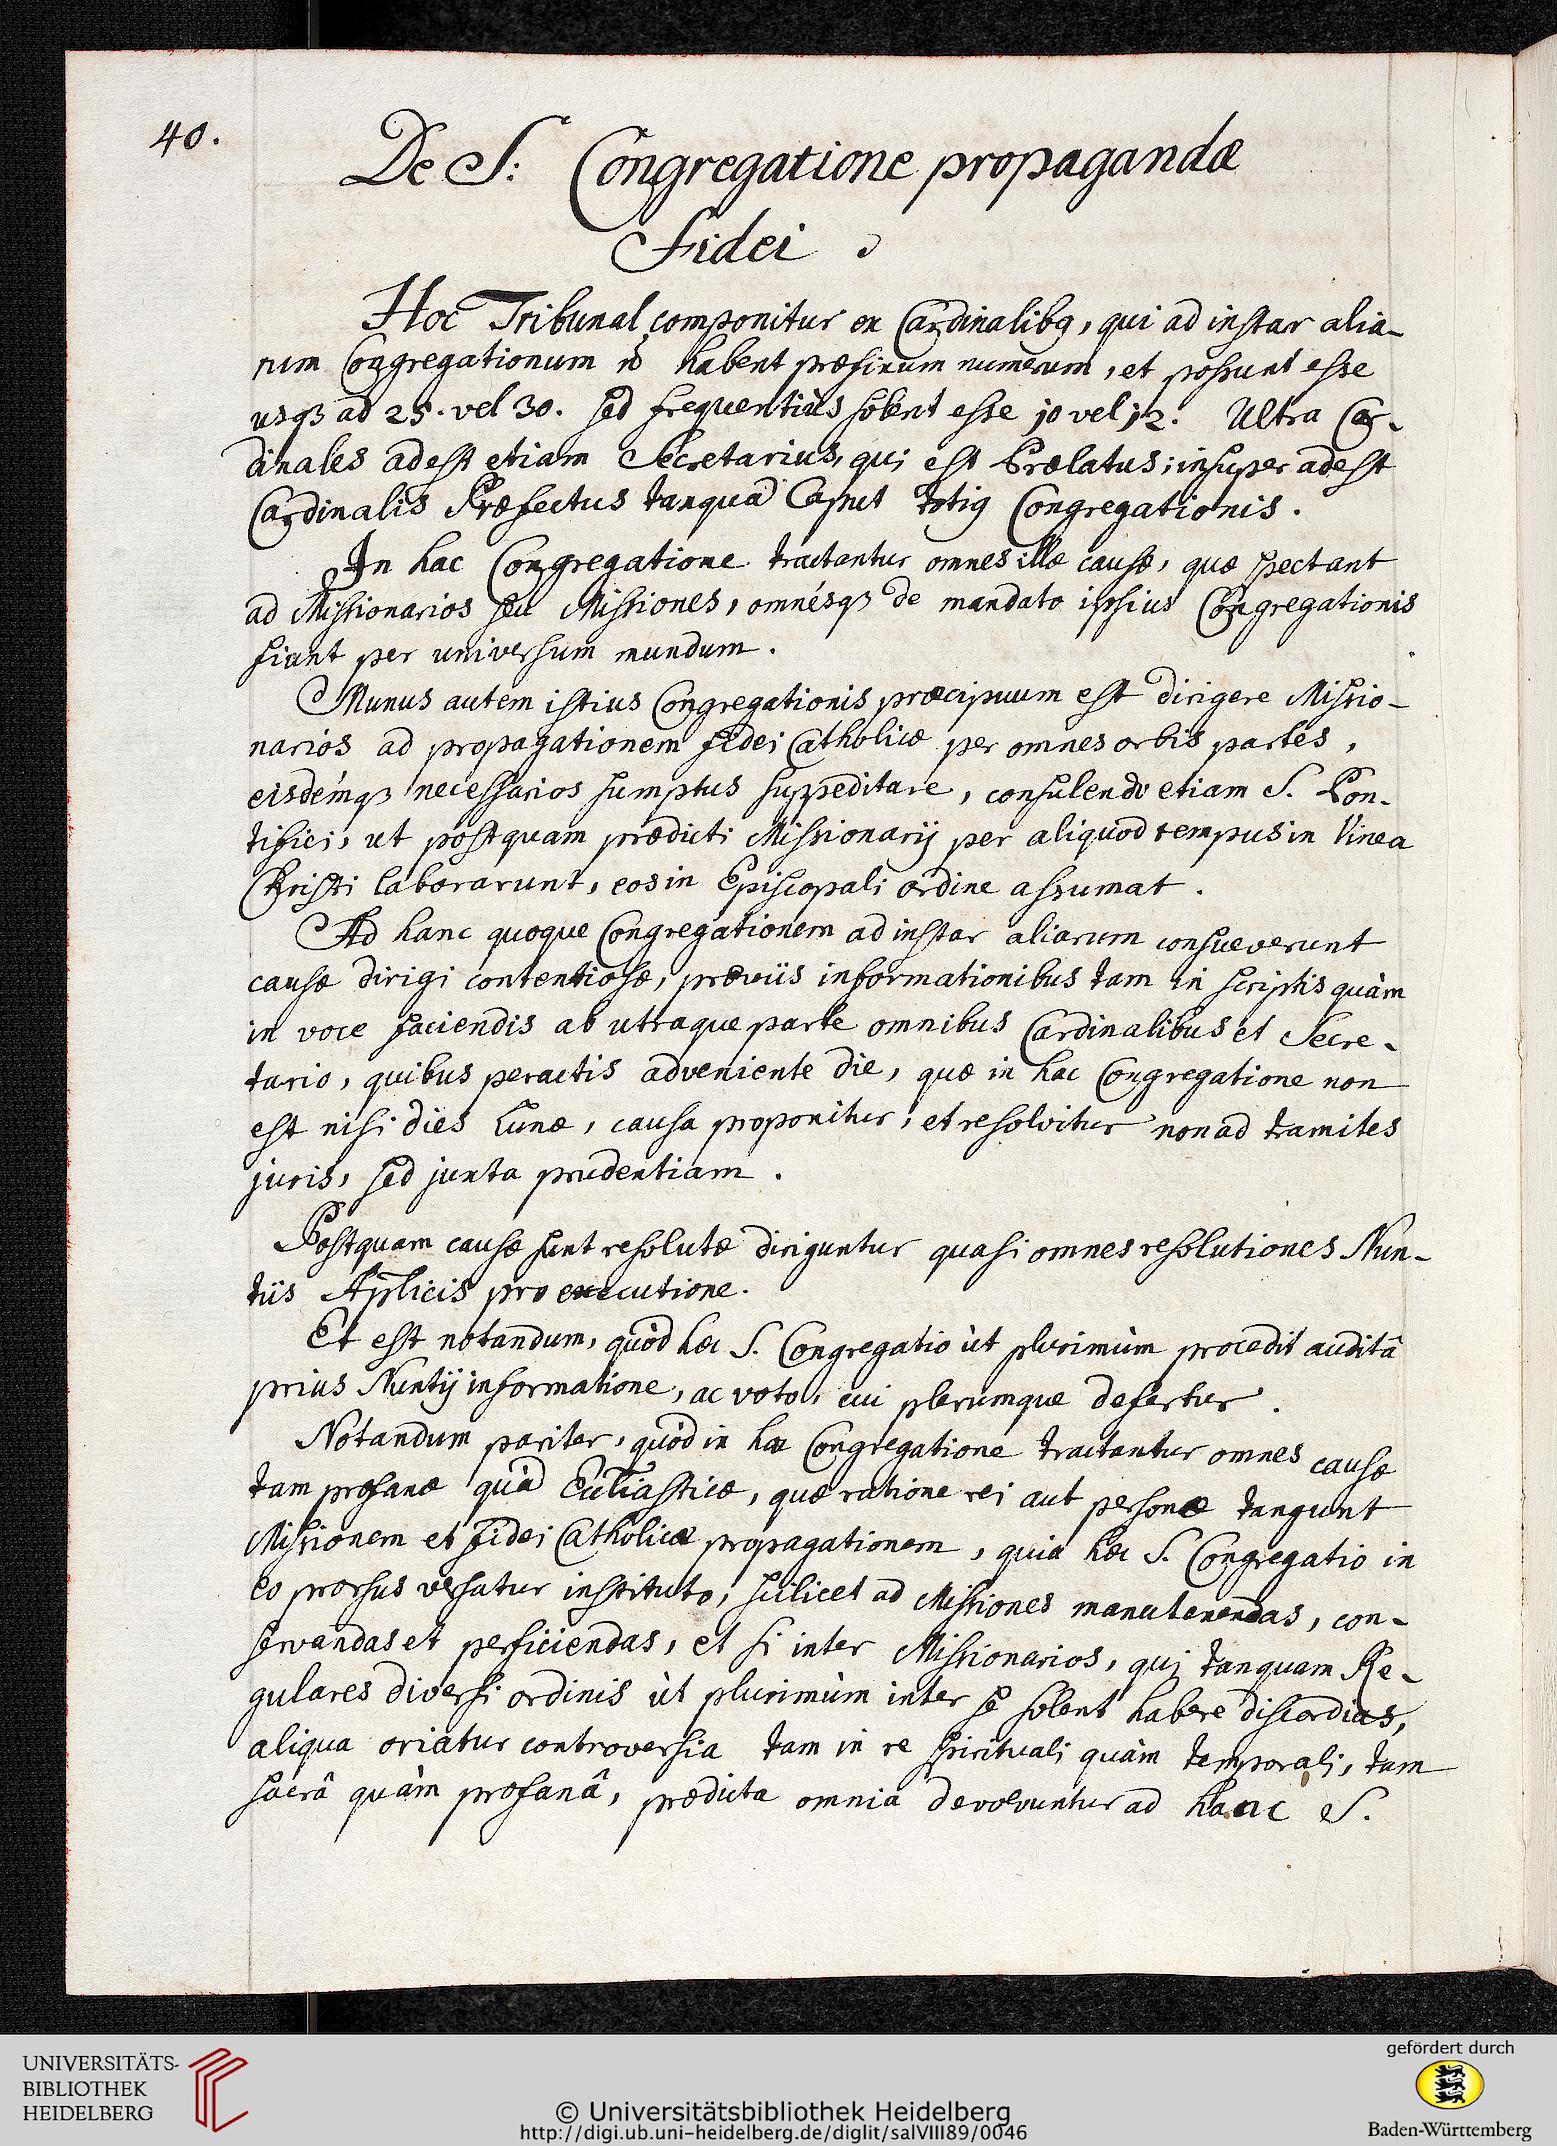 40.
De S: Congregatione propagandæ
Fidei
Hoc Tribunal componitur ex Cardinalibꝰ, qui ad instar alia-
rum Congregationum nō habent præfixum numerum, et possunt esse
usqꝫ ad 25. vel 30. sed frequentiùs solent esse 10 vel 12. Ultra Car-
dinales adest etiam Secretarius, qui est Prælatus; insuper adest
Cardinalis Præfectus tanquā Caput totiꝰ Congregationis.
In hac Congregatione tractantur omnes illæ causæ, quæ spectant
ad Missionarios seu Missiones, omnésqꝫ de mandato ipsius Congregationis
fiant per universum mundum.
Munus autem istius Congregationis præcipuum est dirigere Missio-
narios ad propagationem fidei Catholicæ per omnes orbis partes,
eisdémqꝫ necessarios sumptus suppeditare, consulendo etiam S. Pon-
tifici, ut postquam prædicti Missionarij per aliquod tempus in Vinea
Christi laborarunt, eos in Episcopali ordine assumat.
Ad hanc quoque Congregationem ad instar aliarum consueverunt
causæ dirigi contentiosæ, præviis informationibus tam in scriptis quàm
in voce faciendis ab utraque parte omnibus Cardinalibus et Secre-
tario, quibus peractis adveniente die, quæ in hac Congregatione non
est nisi dies Lunæ, causa proponitur, et resolvitur non ad tramites
juris, sed juxta prudentiam.
Postquam causæ sunt resolutæ diriguntur quasi omnes resolutiones Nun-
tiis Aplicis pro executione.
Et est notandum, quòd hæc S. Congregatio ùt plurimùm procedit auditâ
prius Nuntij informatione, ac voto, cui plerumque defertur.
Notandum pariter, quòd in hac Congregatione tractantur omnes causæ
tam profanæ quā Eccliasticæ, quæ ratione rei aut personæ tangunt
Missionem et fidei Catholicæ propagationem, quia hæc S. Congregatio in
eo prorsus versatur instituto, scilicet ad Missiones manutenendas, con-
servandas et perficiendas, et si inter Missionarios, qui tanquam Re-
gulares diversi ordinis ùt plurimùm inter se solent habere discordias,
aliqua oriatur controversia tam in re spirituali quàm temporali, tam
sacrâ quàm profanâ, prædicta omnia devolvuntur ad hanc S.
UNIVERSITÄTS-
BIBLIOTHEK
HEIDELBERG
© Universitätsbibliothek Heidelberg
http://digi.ub.uni-heidelberg.de/diglit/salVIII89/0046
gefördert durch
Baden-Württemberg